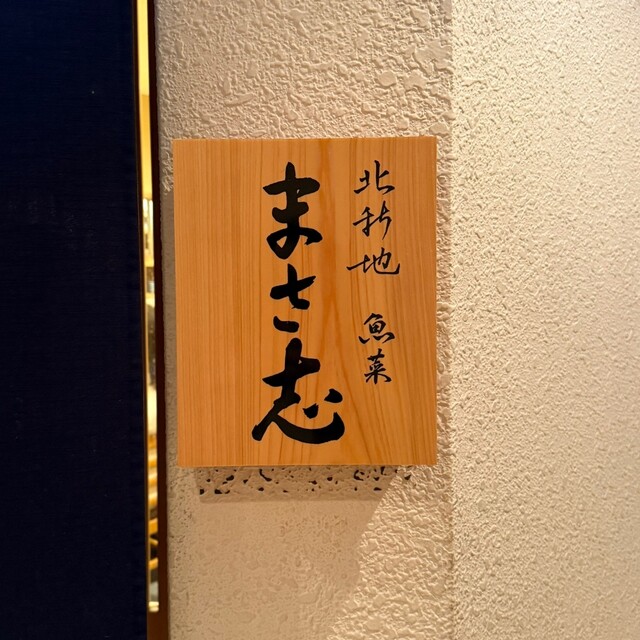 北新地 魚菜
まさ志